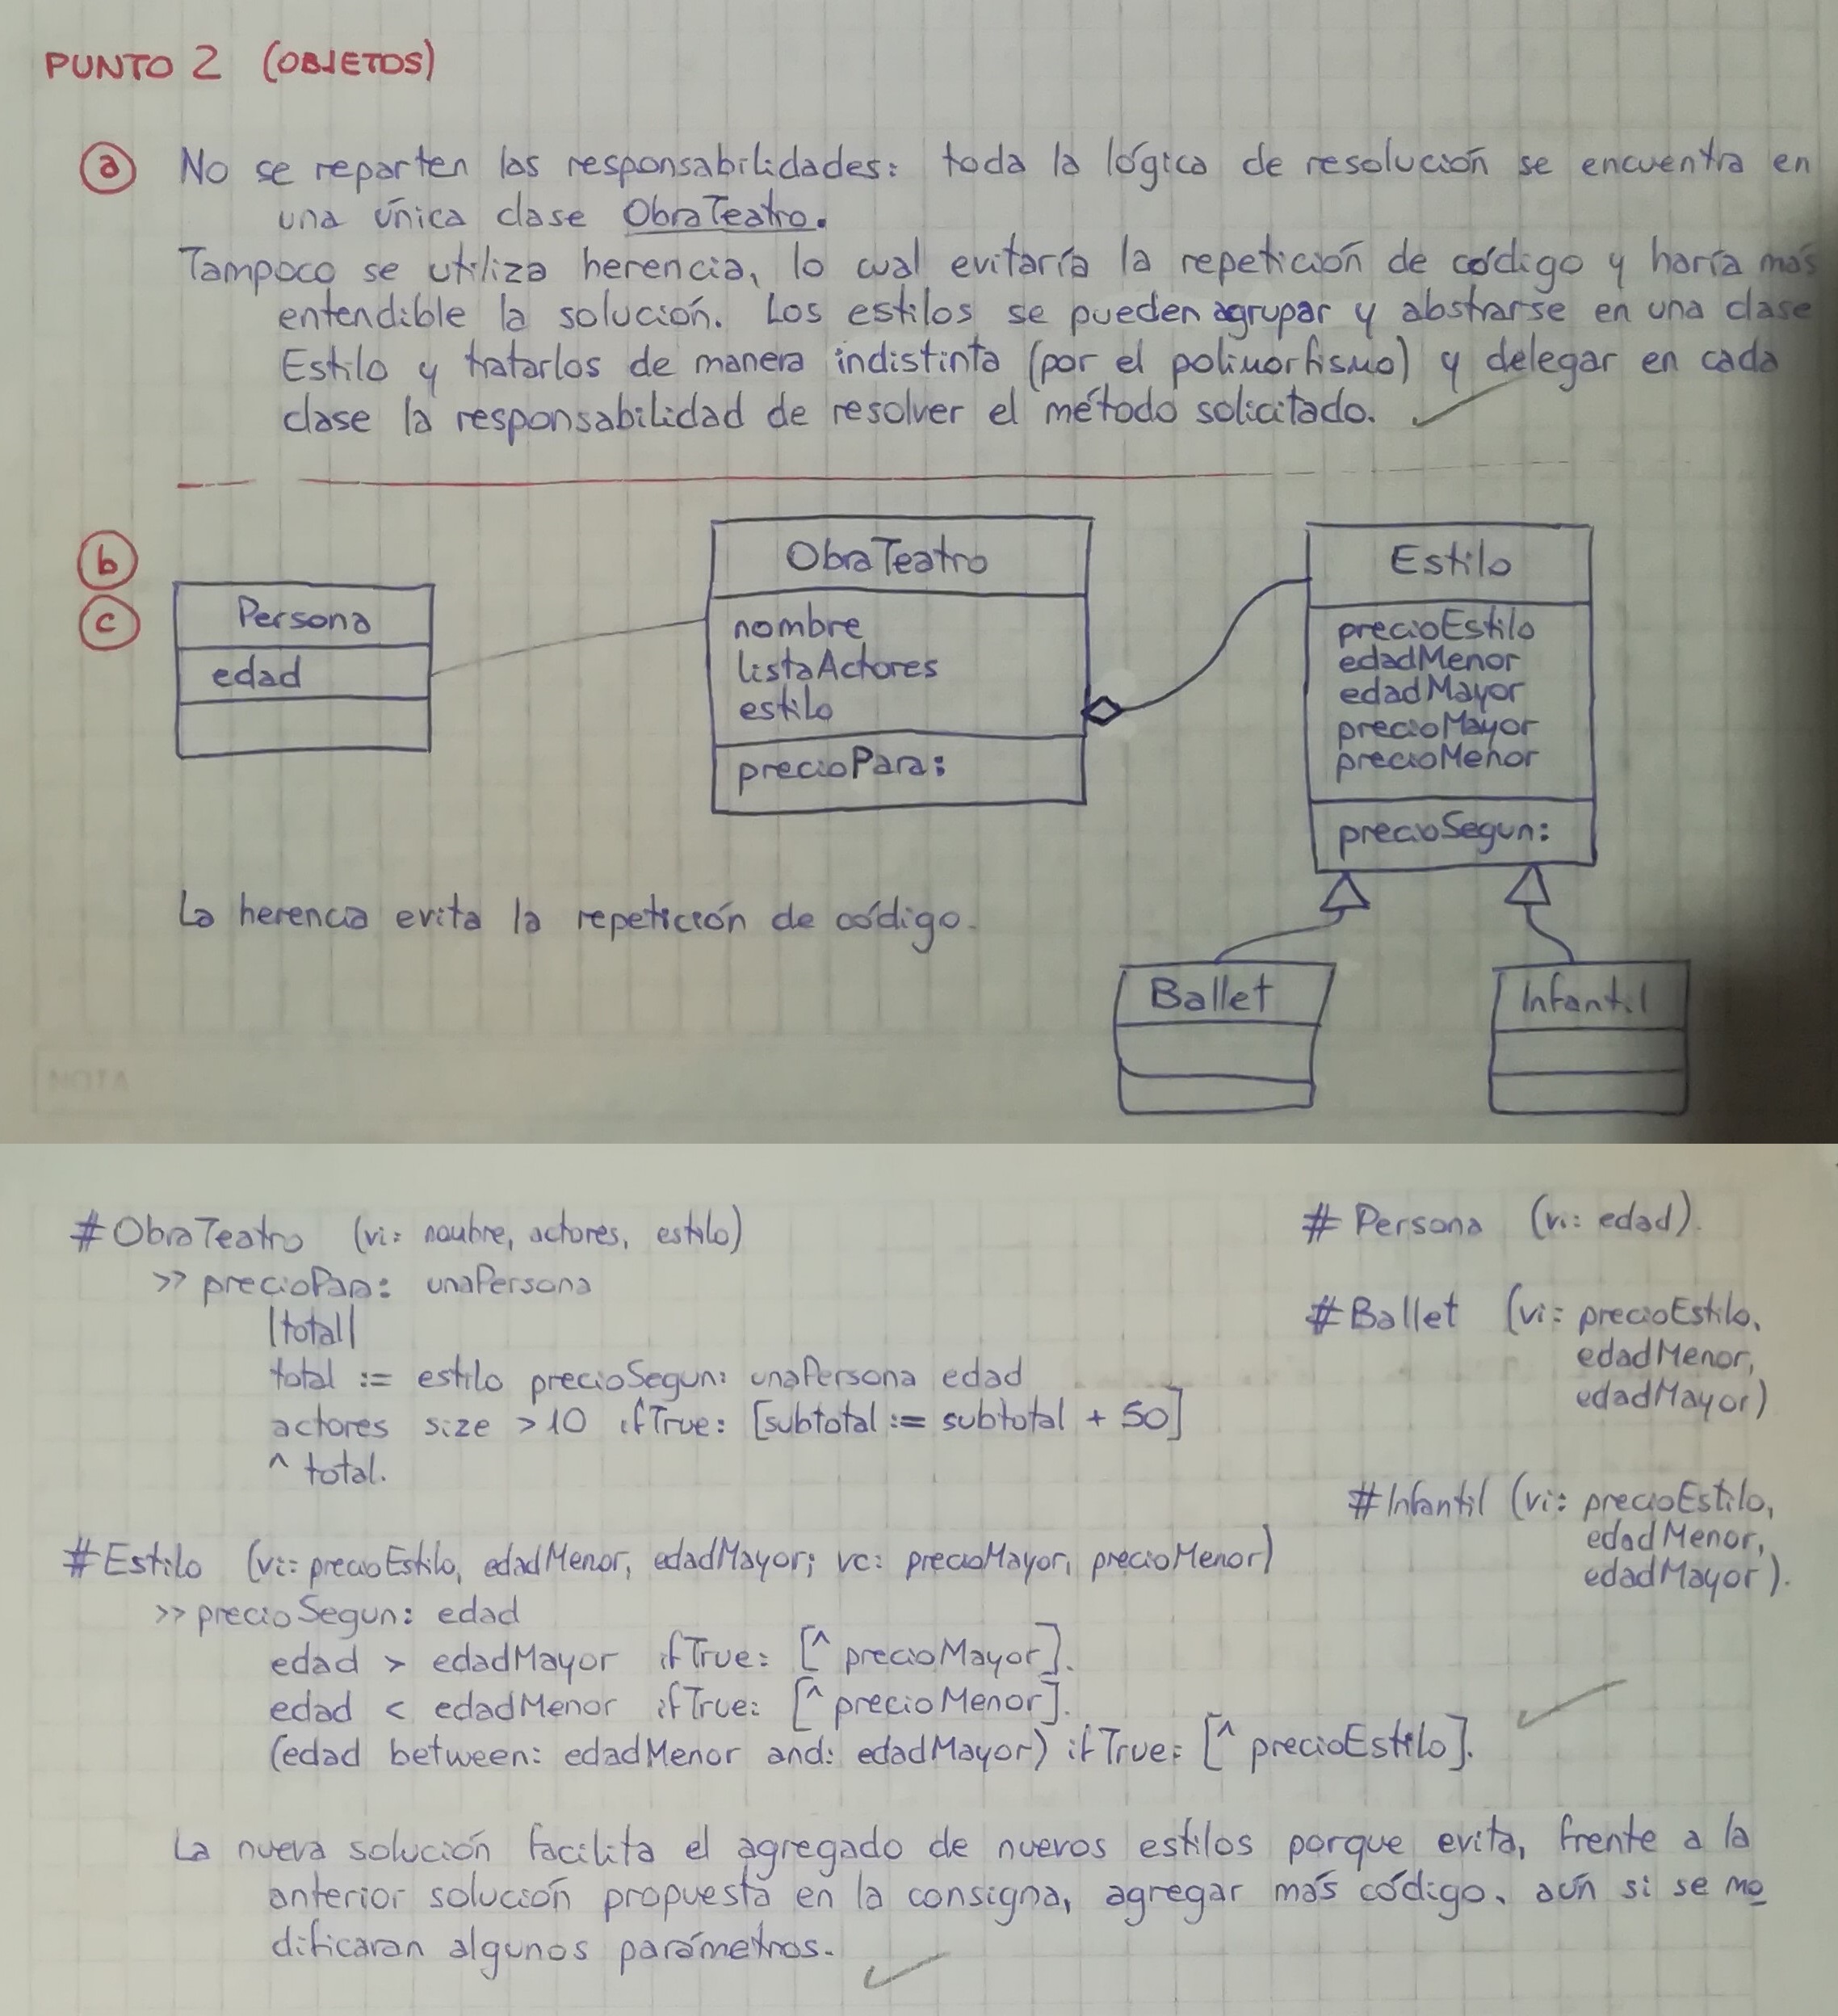 PUNTO 2 (OBJETOS)
a No se reparten las responsabilidades: toda la lógica de resolución se encuentra en
una única clase ObraTeatro.
Tampoco se utiliza herencia, lo cual evitaría la repetición de código y haría más
entendible la solución. Los estilos se pueden agrupar y abstrarse en una clase
Estilo y tratarlos de manera indistinta (por el polimorfismo) y delegar en cada
clase la responsabilidad de resolver el método solicitado.
b
c
Persona
edad
ObraTeatro
nombre
listaActores
estilo
precioPara:
Estilo
precioEstilo
edadMenor
edadMayor
precioMayor
precioMenor
precioSegun:
La herencia evita la repetición de código.
Ballet
Infantil
NOTA
#ObraTeatro (vi: nombre, actores, estilo)
>> precioPara: unaPersona
|total|
total := estilo precioSegun: unaPersona edad
actores size >10 ifTrue: [subtotal := subtotal + 50]
^ total.
#Estilo (vi: precioEstilo, edadMenor, edadMayor; vc: precioMayor, precioMenor)
>> precioSegun: edad
edad > edadMayor ifTrue: [^ precioMayor].
edad < edadMenor ifTrue: [^ precioMenor].
(edad between: edadMenor and: edadMayor) ifTrue: [^ precioEstilo].
# Persona (vi: edad).
#Ballet (vi: precioEstilo,
edadMenor,
edadMayor)
#Infantil (vi: precioEstilo,
edadMenor,
edadMayor).
La nueva solución facilita el agregado de nuevos estilos porque evita, frente a la
anterior solución propuesta en la consigna, agregar más código, aún si se mo
dificaran algunos parámetros.